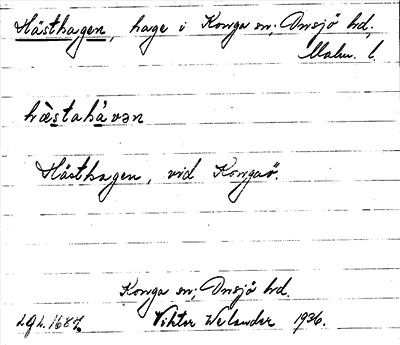 Hästhagen, hage i Konga sn; Onsjö hd,
Malm. l.
hɛ̀stahàvən
Hästhagen, vid Kongaö.
Konga sn; Onsjö hd.
LGL. 1687 Viktor Welander 1936.